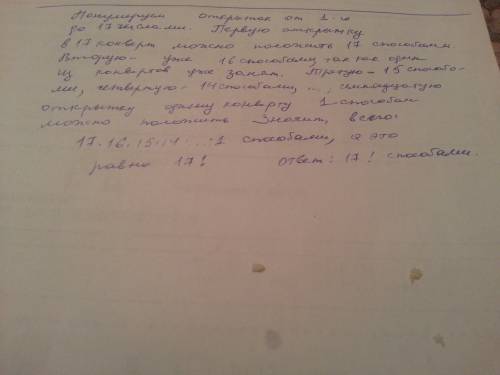 Пронумеруем открыток от 1-го
до 17 числами. Первую открытку
в 17 конверт можно положить 17 способами.
Вторую - уже 16 способами, так как один
из конвертов уже занят. Третью - 15 способа-
ми, четвертую - 14 способами, ..., семнадцатую
открытку одному конверту 1 способом
можно положить Значит, всего:
17·16·15·14·...·1 способами, а это
равно 17! Ответ: 17! способами.